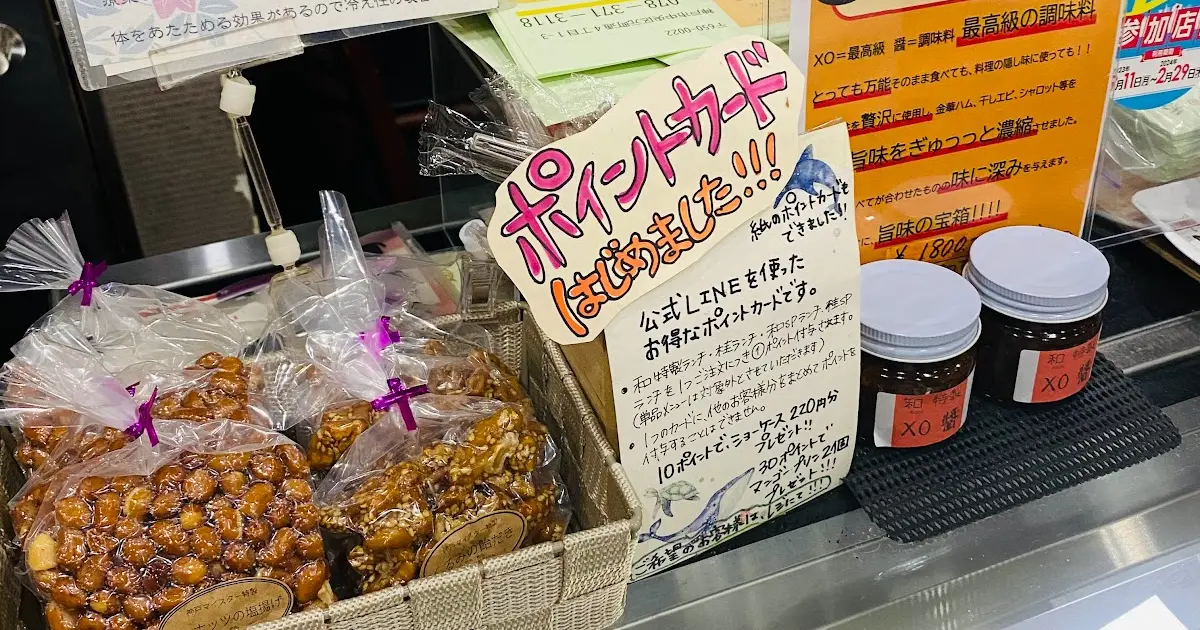 体をあたためる効果があるので冷え性の
078-371-3118
〒650-0022
神戸市中央区元町通4丁目1-3
ポイントカード
はじめました!!!
紙のポイントカードも
できました!!
公式LINEを使った
お得なポイントカードです。
・和特製ランチ・桂ランチ・和SPランチ・桂SP
ランチを1つご注文につき①ポイント付与させます。
(単品メニューは対象外とさせていただきます)
・1つのカードに、他のお客様分をまとめてポイントを
付与することはできません。
10ポイントで、ショーケース220円分
プレゼント!!
30ポイントで、
マンゴープリン2個
プレゼント!!!
ご希望のお客様は、
XO=最高級 醤=調味料 最高級の調味料
とっても万能そのまま食べても、料理の隠し味に使っても!!
を贅沢に使用し、金華ハム、干しエビ、シャロット等を
旨味をぎゅっっと濃縮させました。
べてが合わせたものの味に深みを与えます。
に、旨味の宝箱!!!!
¥1800
参加店
2024年
月11日月〜2月29日木
和 特製
XO 醤
和 特製
XO 醤
神戸マイスター特製
ナッツの塩揚げ
の飴だき